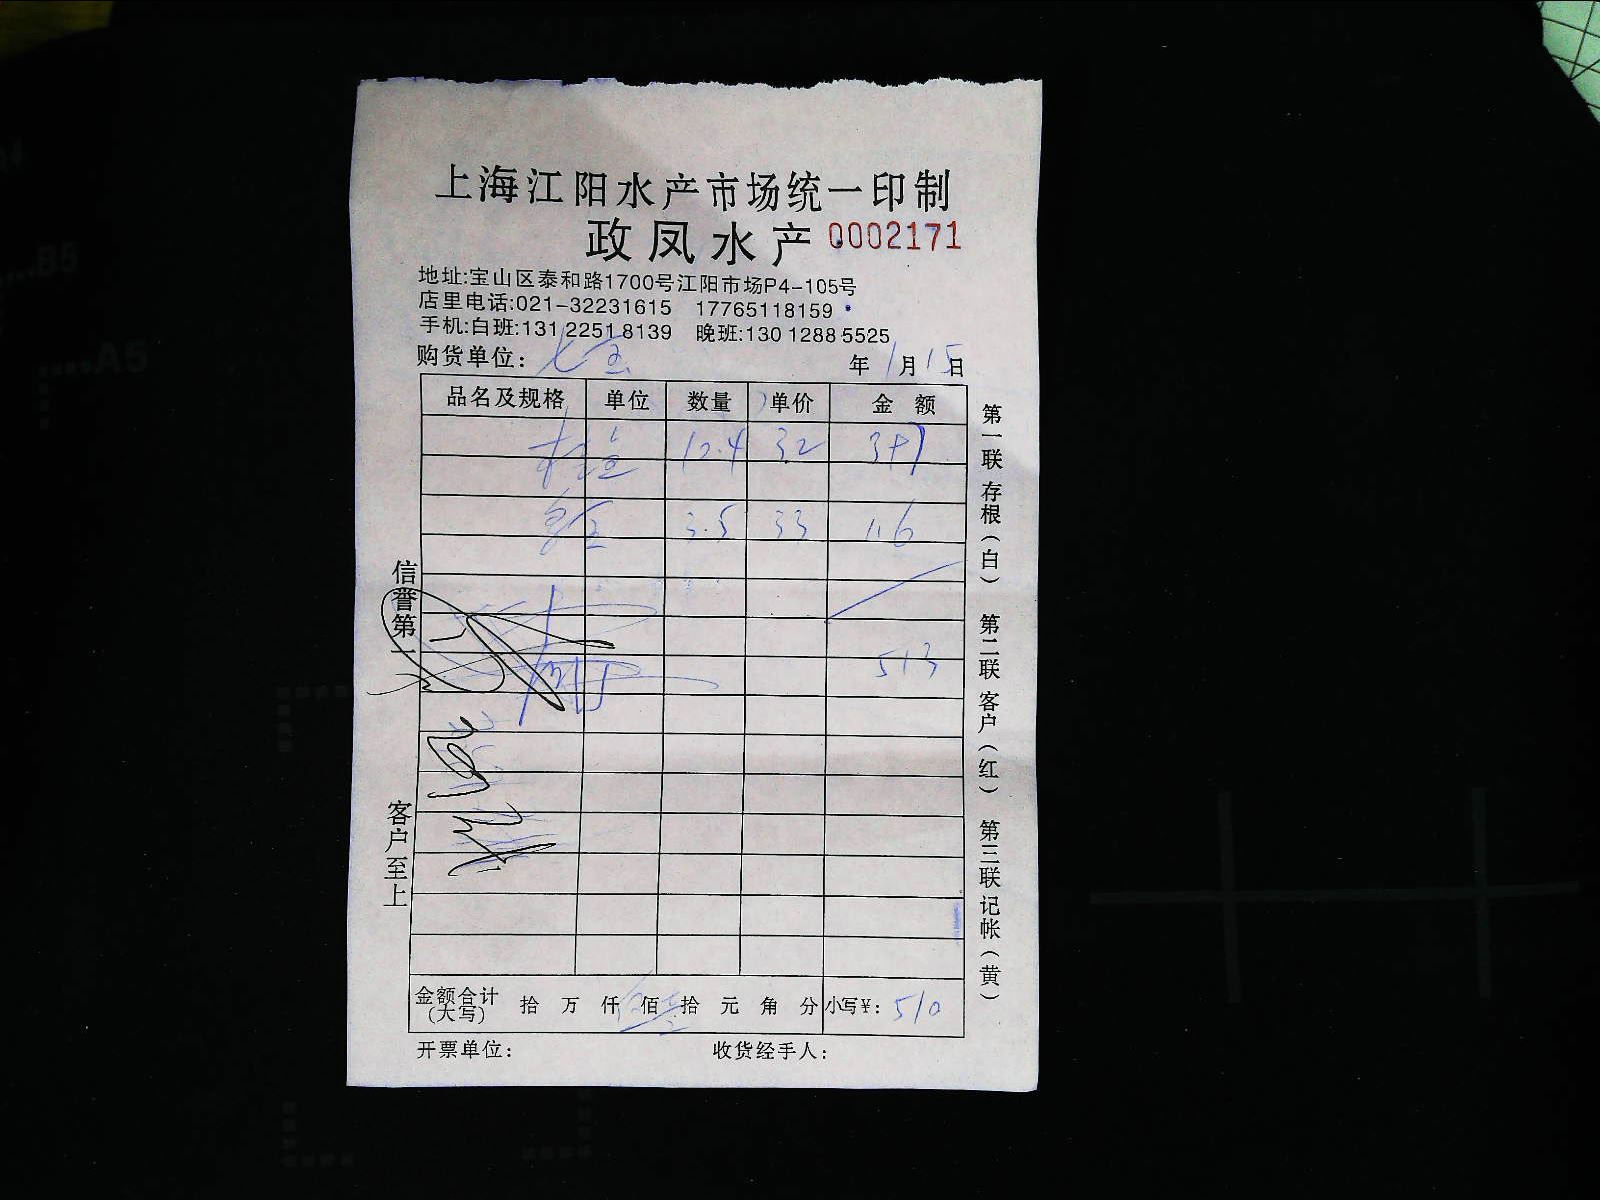 上海江阳水产市场统一印制
政凤水产 0002171
地址:宝山区泰和路1700号江阳市场P4-105号
店里电话:021-32231615 17765118159
手机:白班:131 2251 8139 晚班:130 1288 5525
购货单位: 七宝 年 1 月 15 日
品名及规格 单位 数量 单价 金 额
12.4 32 397
3.5 33 116
513
金额合计(大写) 拾 万 仟 佰 拾 元 角 分 小写¥: 510
开票单位: 收货经手人:
信誉第一
客户至上
第一联 存根(白) 第二联 客户(红) 第三联 记帐(黄)
B5
A5